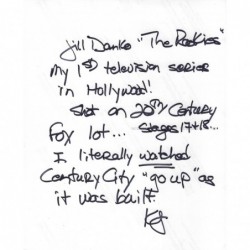 Jill Danko "The Rookies"
my 1st television series
in Hollywood!
Shot on 20th Century
Fox lot... Stages 17+18...
I literally watched
Century City "go up" as
it was built.
KJ